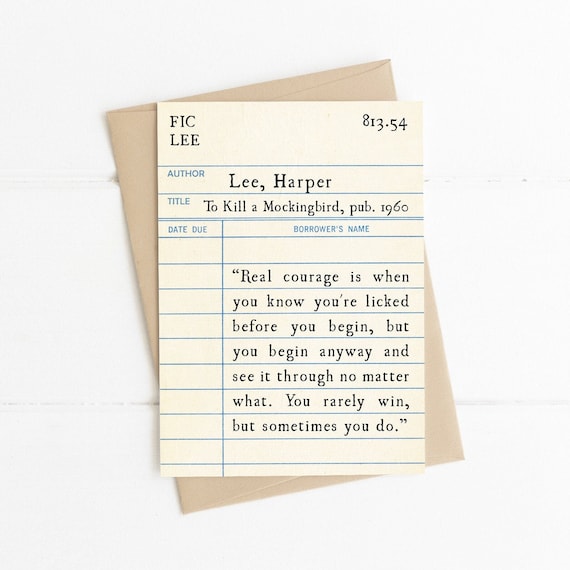 FIC 813.54
LEE
AUTHOR Lee, Harper
TITLE To Kill a Mockingbird, pub. 1960
DATE DUE BORROWER'S NAME
“Real courage is when
you know you're licked
before you begin, but
you begin anyway and
see it through no matter
what. You rarely win,
but sometimes you do.”